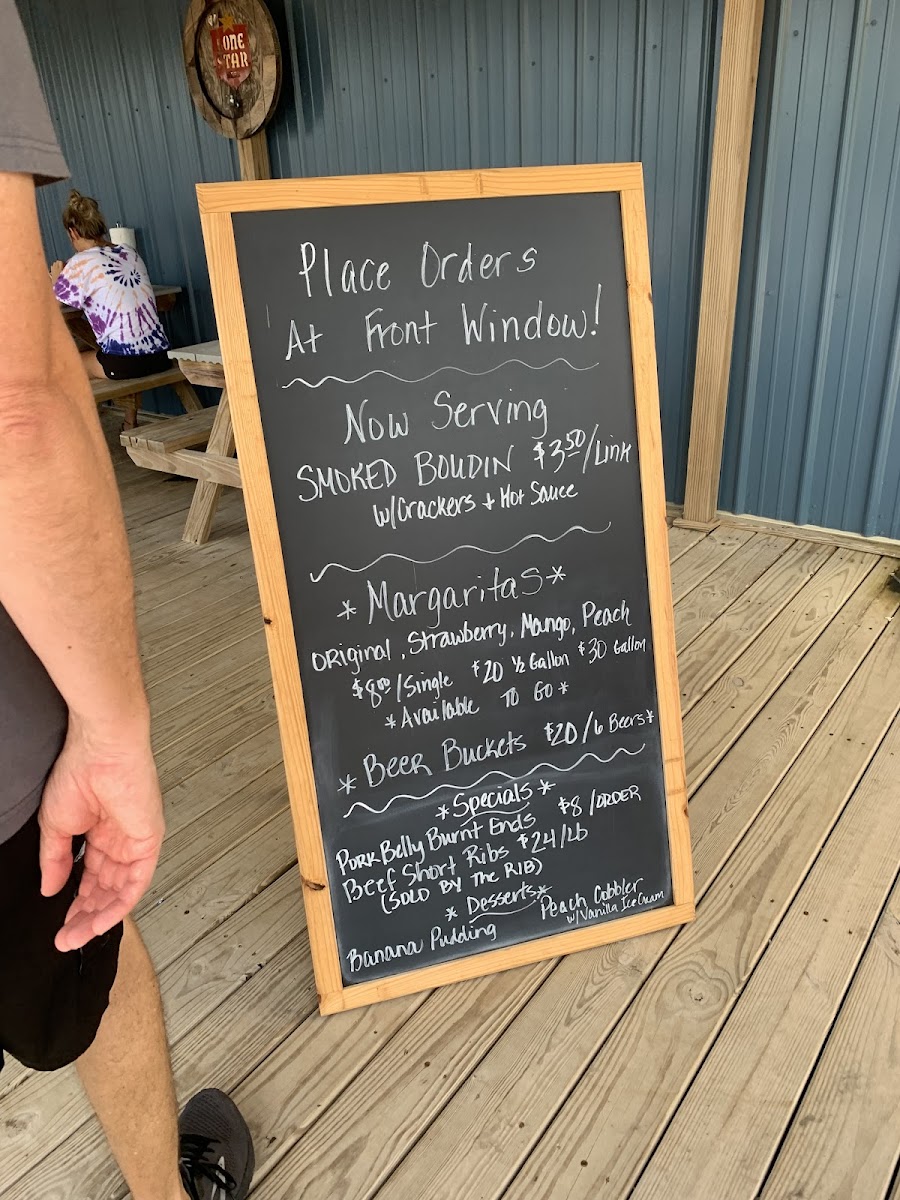 LONE
STAR
Place Orders
At Front Window!
Now Serving
SMOKED BOUDIN $3.50/Link
w/Crackers + Hot Sauce
* Margaritas *
Original, Strawberry, Mango, Peach
$8.00/Single $20 ½ Gallon $30 Gallon
* Available TO GO *
* Beer Buckets $20/6 Beers *
* Specials *
Pork Belly Burnt Ends $8/ORDER
Beef Short Ribs $24/lb
(SOLD BY THE RIB)
* Desserts *
Banana Pudding Peach Cobbler
w/Vanilla Ice Cream